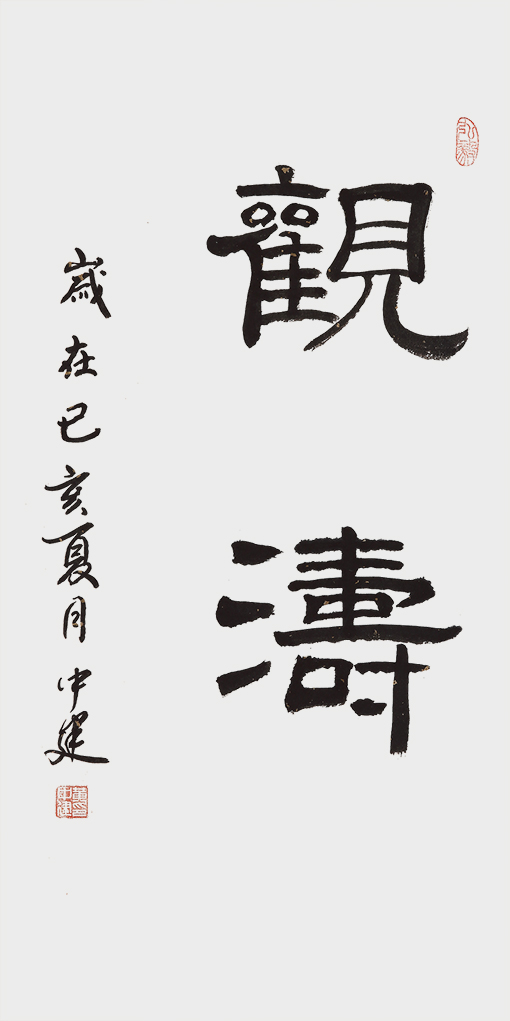 觀濤
歲在己亥夏月中建